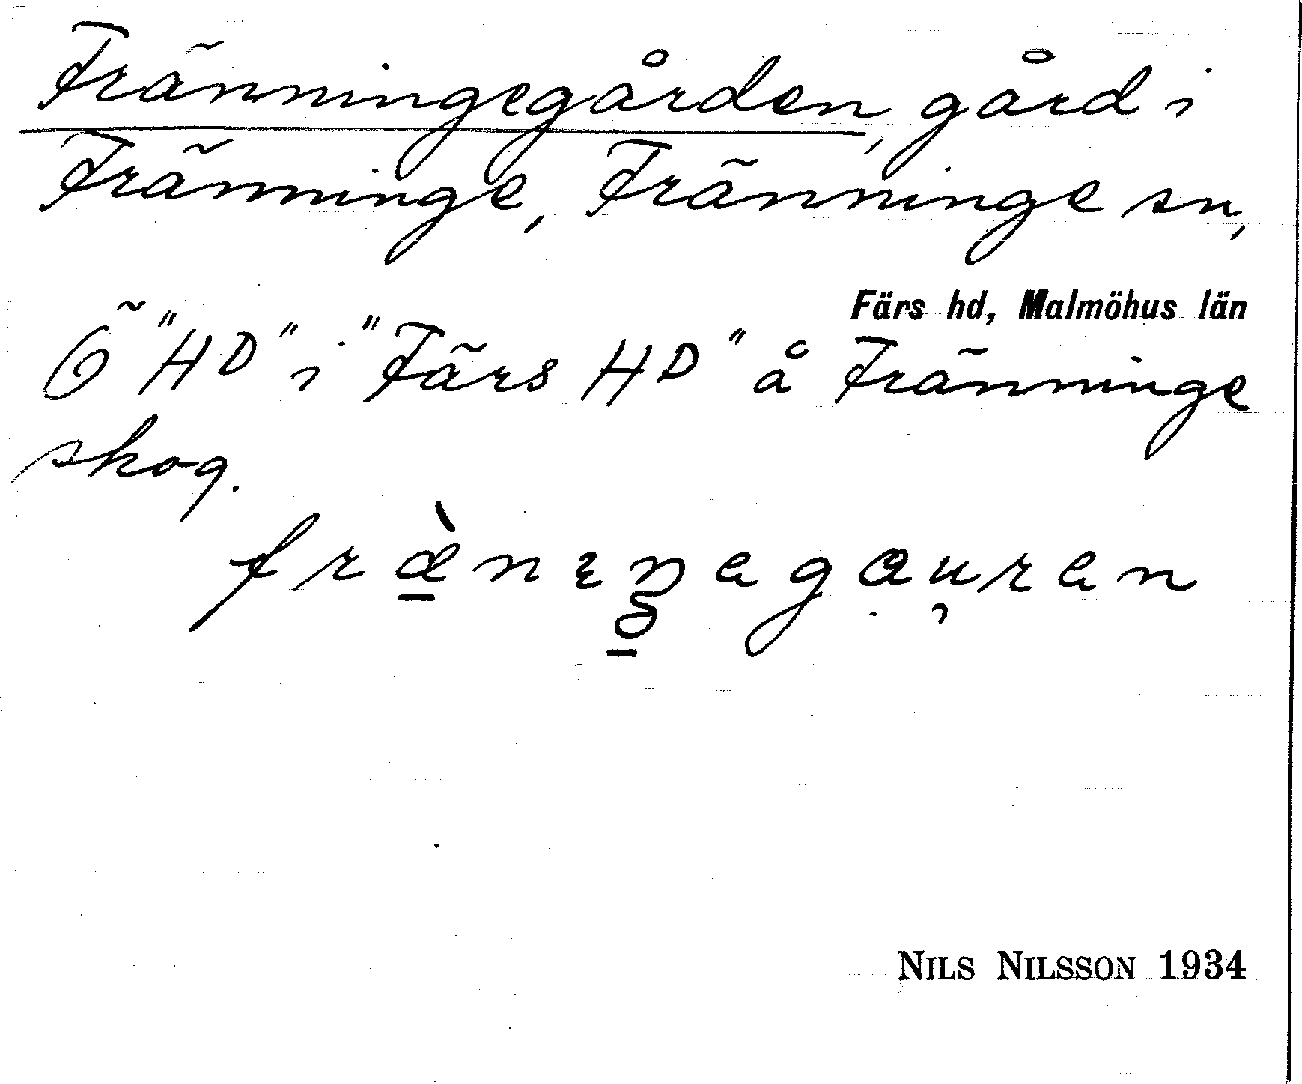 Fränningegården, gård i
Fränninge, Fränninge sn,
Färs hd, Malmöhus län
Ö "HD" i "Färs HD" å Fränninge
skog.
fræ̀nıŋagauran
NILS NILSSON 1934